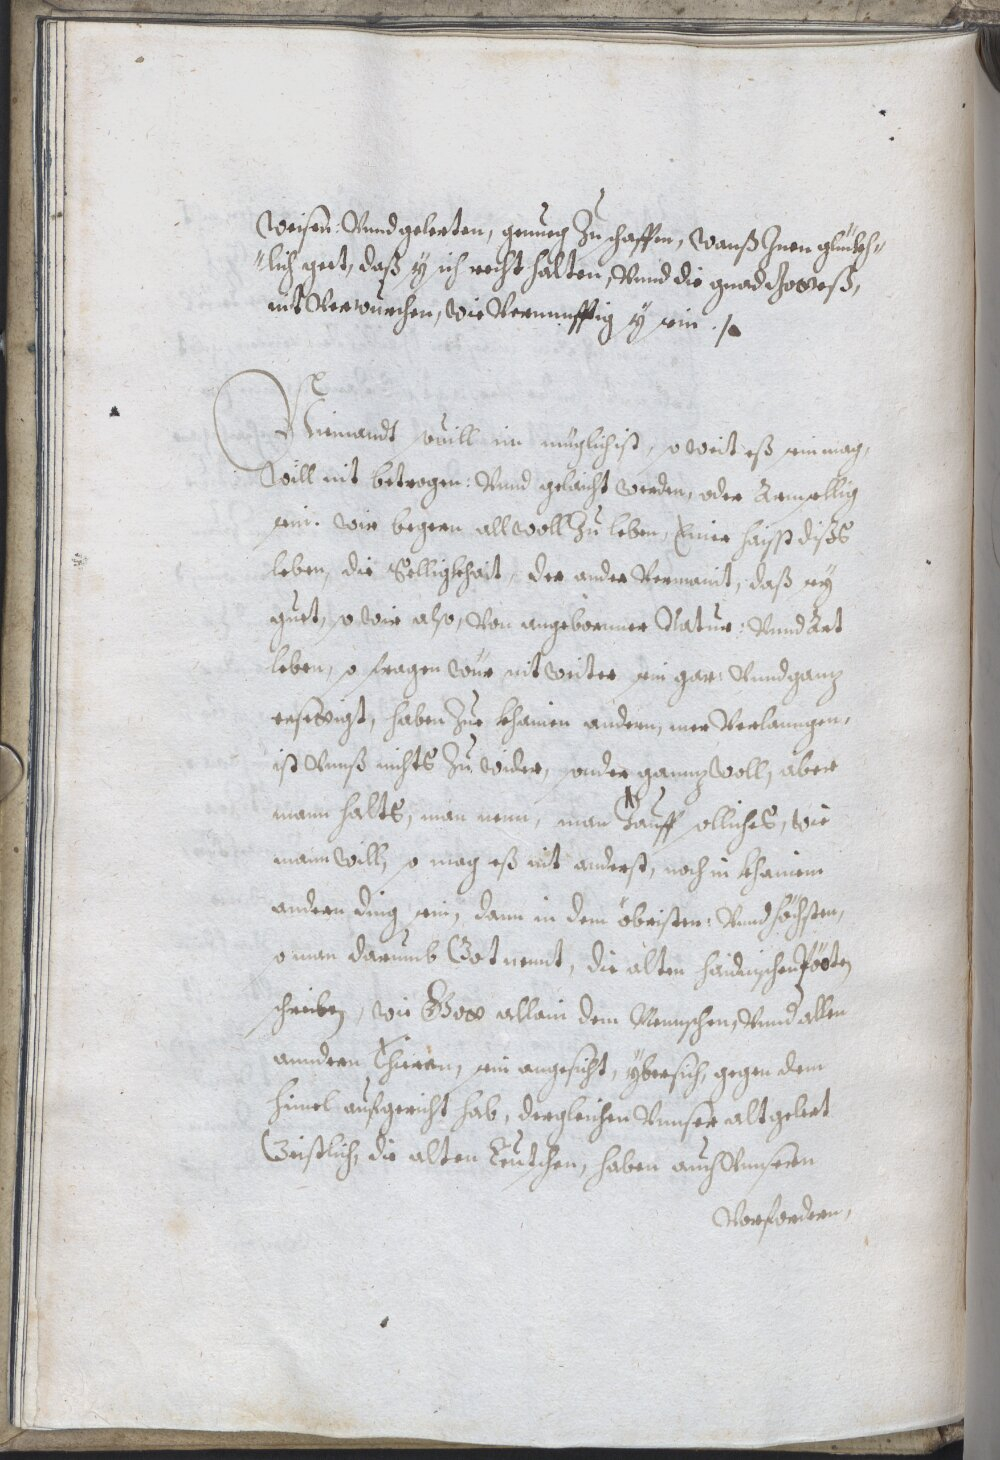 Weisen: Vnnd gelerten, genueg Zu schaffen, Wanß Inen glückh¬
lich geet, daß sy sich recht halten, Vnnd die gnad Gottes,
nit Verwürchen, Wie Vernunfftig sy sein ./.
Niemandt souill im müglich ist, so weit eß sein mag,
Will nit betrogen: Vnnd gelaicht werden, oder Armsellig
sein. Wir begern all woll Zu leben, Einer haisst dises
leben, die Selligkhait, der ander Vermaint, daß sey
guet, so wir also, Von angeborner Natur: Vnnd Art
leben, so fragen wür nit weiter sein gar: Vnnd ganz
ersettigt, haben Zue khainen andern, mer Verlanngen,
ist Vnnß nichts Zu wider, sonder gannz woll, aber
mann halts, man nenn, man Tauff solliches, wie
mann will, so mag eß nit anderst, noch in khainem
andern ding sein, dann in dem öbristen: Vnnd höchsten,
so man darumb Got nennt, die alten haidnischen Poeten
schreiben, wie Gott allain dem Mennschen, Vnnd allen
anndern Thieren, sein angesicht, übersich, gegen dem
himel aufgericht hab, dergleichen Vnnser alt gelert
Geistlich, die alten Teutschen, haben auch Vnnseren
Vorfordern,